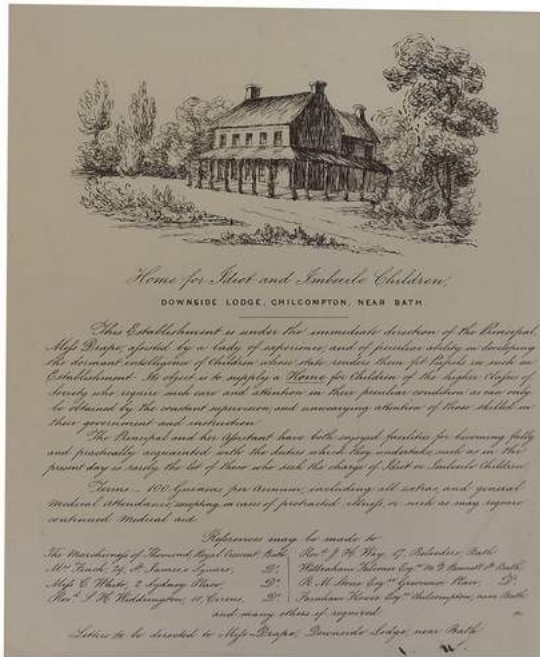 Home for Idiot and Imbecile Children,
DOWNSIDE LODGE, CHILCOMPTON, NEAR BATH.
This Establishment is under the immediate direction of the Principal,
Miss Drape, assisted by a lady of experience, and of peculiar ability in developing
the dormant intelligence of Children whose state renders them fit Pupils in such an
Establishment. Its object is to supply a Home for Children of the higher Classes of
Society who require such care and attention in their peculiar condition as can only
be obtained by the constant supervision, and unwearying attention of those skilled in
their government and instruction.
The Principal and her Assistant have both enjoyed facilities for becoming fully
and practically acquainted with the duties which they undertake, such as in the
present day is rarely the lot of those who seek the charge of Idiot or Imbecile Children
Terms _ 100 Guineas per Annum, including all extras, and general
Medical Attendance, excepting in cases of protracted illness, or such as may require
continued Medical aid.
References may be made to
The Marchioness of Thomond, Royal Crescent, Bath
Mrs Finch, 29, St James's Square, Do.
Miss C. White, 2 Sydney Place, Do
Revd. S. H. Widdrington, 10, Circus, Do
Revd J. H. Way, 17, Belvedere, Bath
Falconer Esqre M.D Bennett St Bath
R. M. Esqre Grosvenor Place, Do.
Flower Esqre Chilcompton, near Bath
and many others if required.
Letters to be directed to Miss Drape, Downside Lodge, near Bath